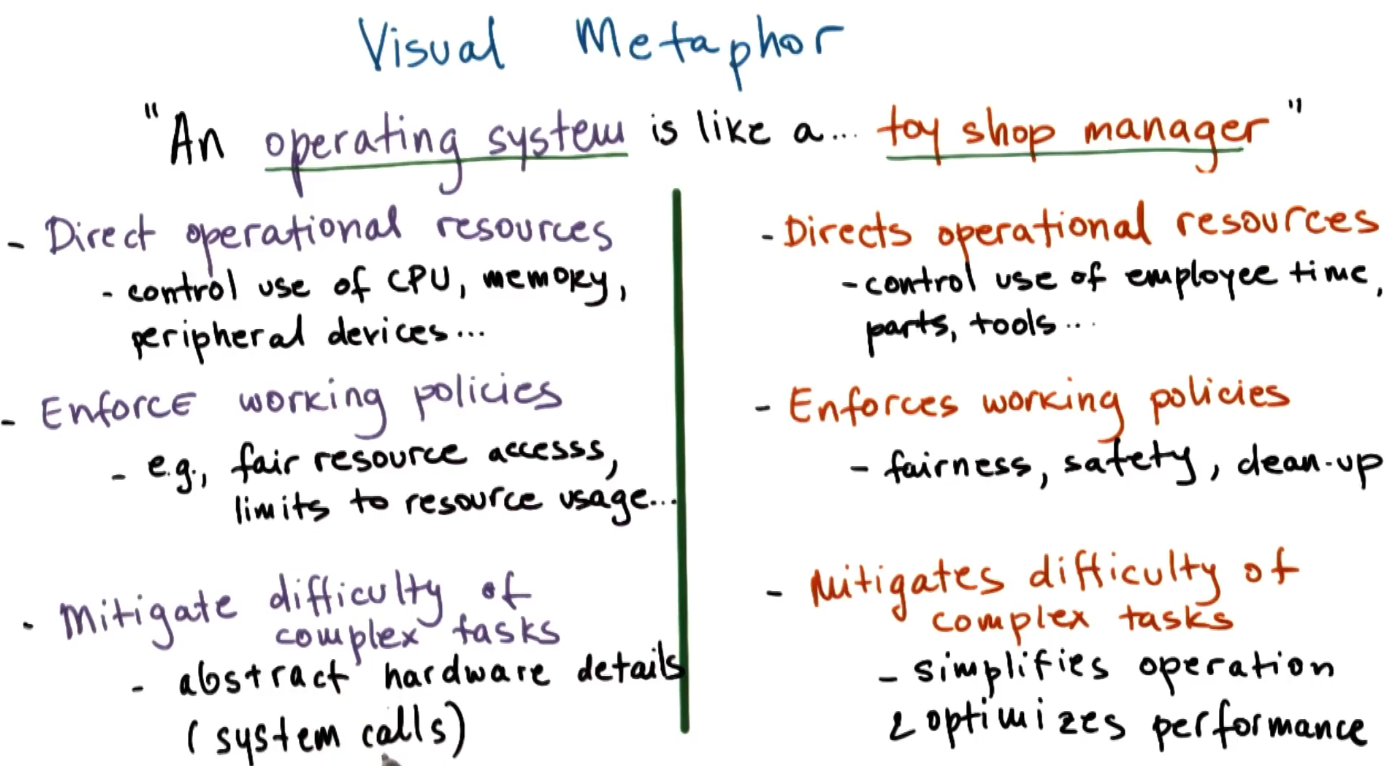 Visual Metaphor
"An operating system is like a... toy shop manager"
- Direct operational resources
- control use of CPU, memory,
peripheral devices...
- Enforce working policies
- e.g., fair resource accesss,
limits to resource usage...
- Mitigate difficulty of
complex tasks
- abstract hardware details
(system calls)
- Directs operational resources
- control use of employee time,
parts, tools...
- Enforces working policies
- fairness, safety, clean-up
- Mitigates difficulty of
complex tasks
- simplifies operation
& optimizes performance